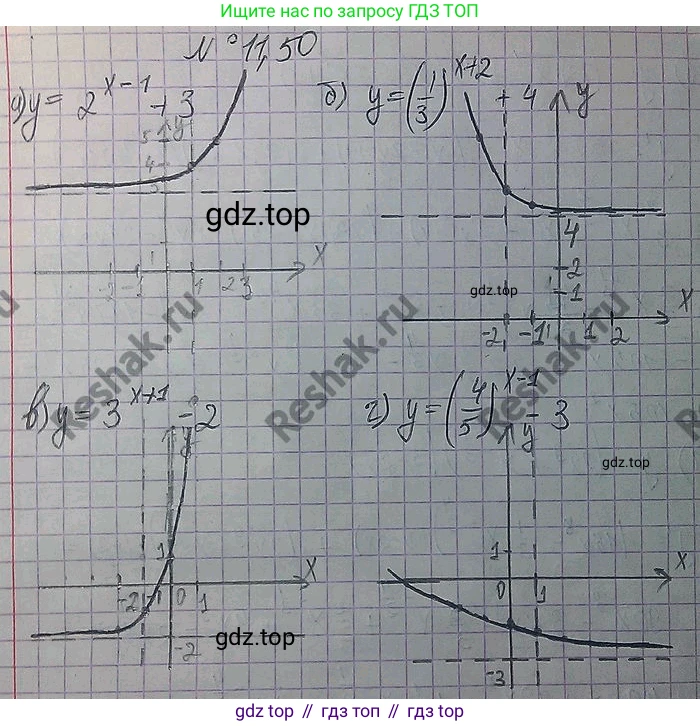 Ищите нас в поиске ГДЗ ТОП
№ 11,50
а) y = 2^{x-1} + 3
б) y = (1/3)^{x+2} + 4
y
5
4
3
1
gdz.top
-2 -1 1 2 3 x
y
4
2
1
gdz.top
-2 -1 1 2 x
Reshak.ru
Reshak.ru
Reshak.ru
в) y = 3^{x+1} - 2
г) y = (4/5)^{x-1} - 3
y
1
-2 -1 0 1 x
-2
gdz.top
y
gdz.top
1
0 1 x
-3
gdz.top // гдз.топ // gdz.top // гдз.топ // gdz.top